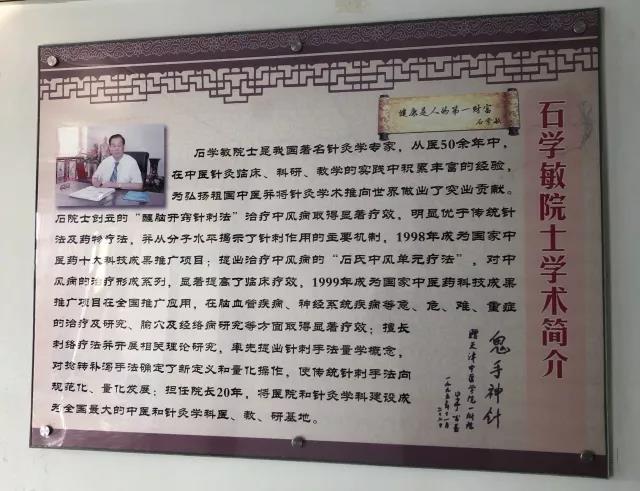 石学敏院士学术简介
健康是人的第一财富
石学敏
石学敏院士是我国著名针灸学专家，从医50余年中，
在中医针灸临床、科研、教学的实践中积累丰富的经验，
为弘扬祖国中医并将针灸学术推向世界做出了突出贡献。
石院士创立的“醒脑开窍针刺法”治疗中风病取得显著疗效，明显优于传统针
法及药物疗法，并从分子水平揭示了针刺作用的主要机制，1998年成为国家中
医药十大科技成果推广项目；提出治疗中风病的“石氏中风单元疗法”，对中
风病的治疗形成系列，显著提高了临床疗效，1999年成为国家中医药科技成果
推广项目在全国推广应用，在脑血管疾病、神经系统疾病等急、危、难、重症
的治疗及研究、腧穴及经络病研究等方面取得显著疗效；擅长
刺络疗法并开展相关理论研究，率先提出针刺手法量学概念，
对捻转补泻手法确定了新定义和量化操作，使传统针刺手法向
规范化、量化发展；担任院长20年，将医院和针灸学科建设成
为全国最大的中医和针灸学科医、教、研基地。
鬼手神针
赠天津中医学院一附院